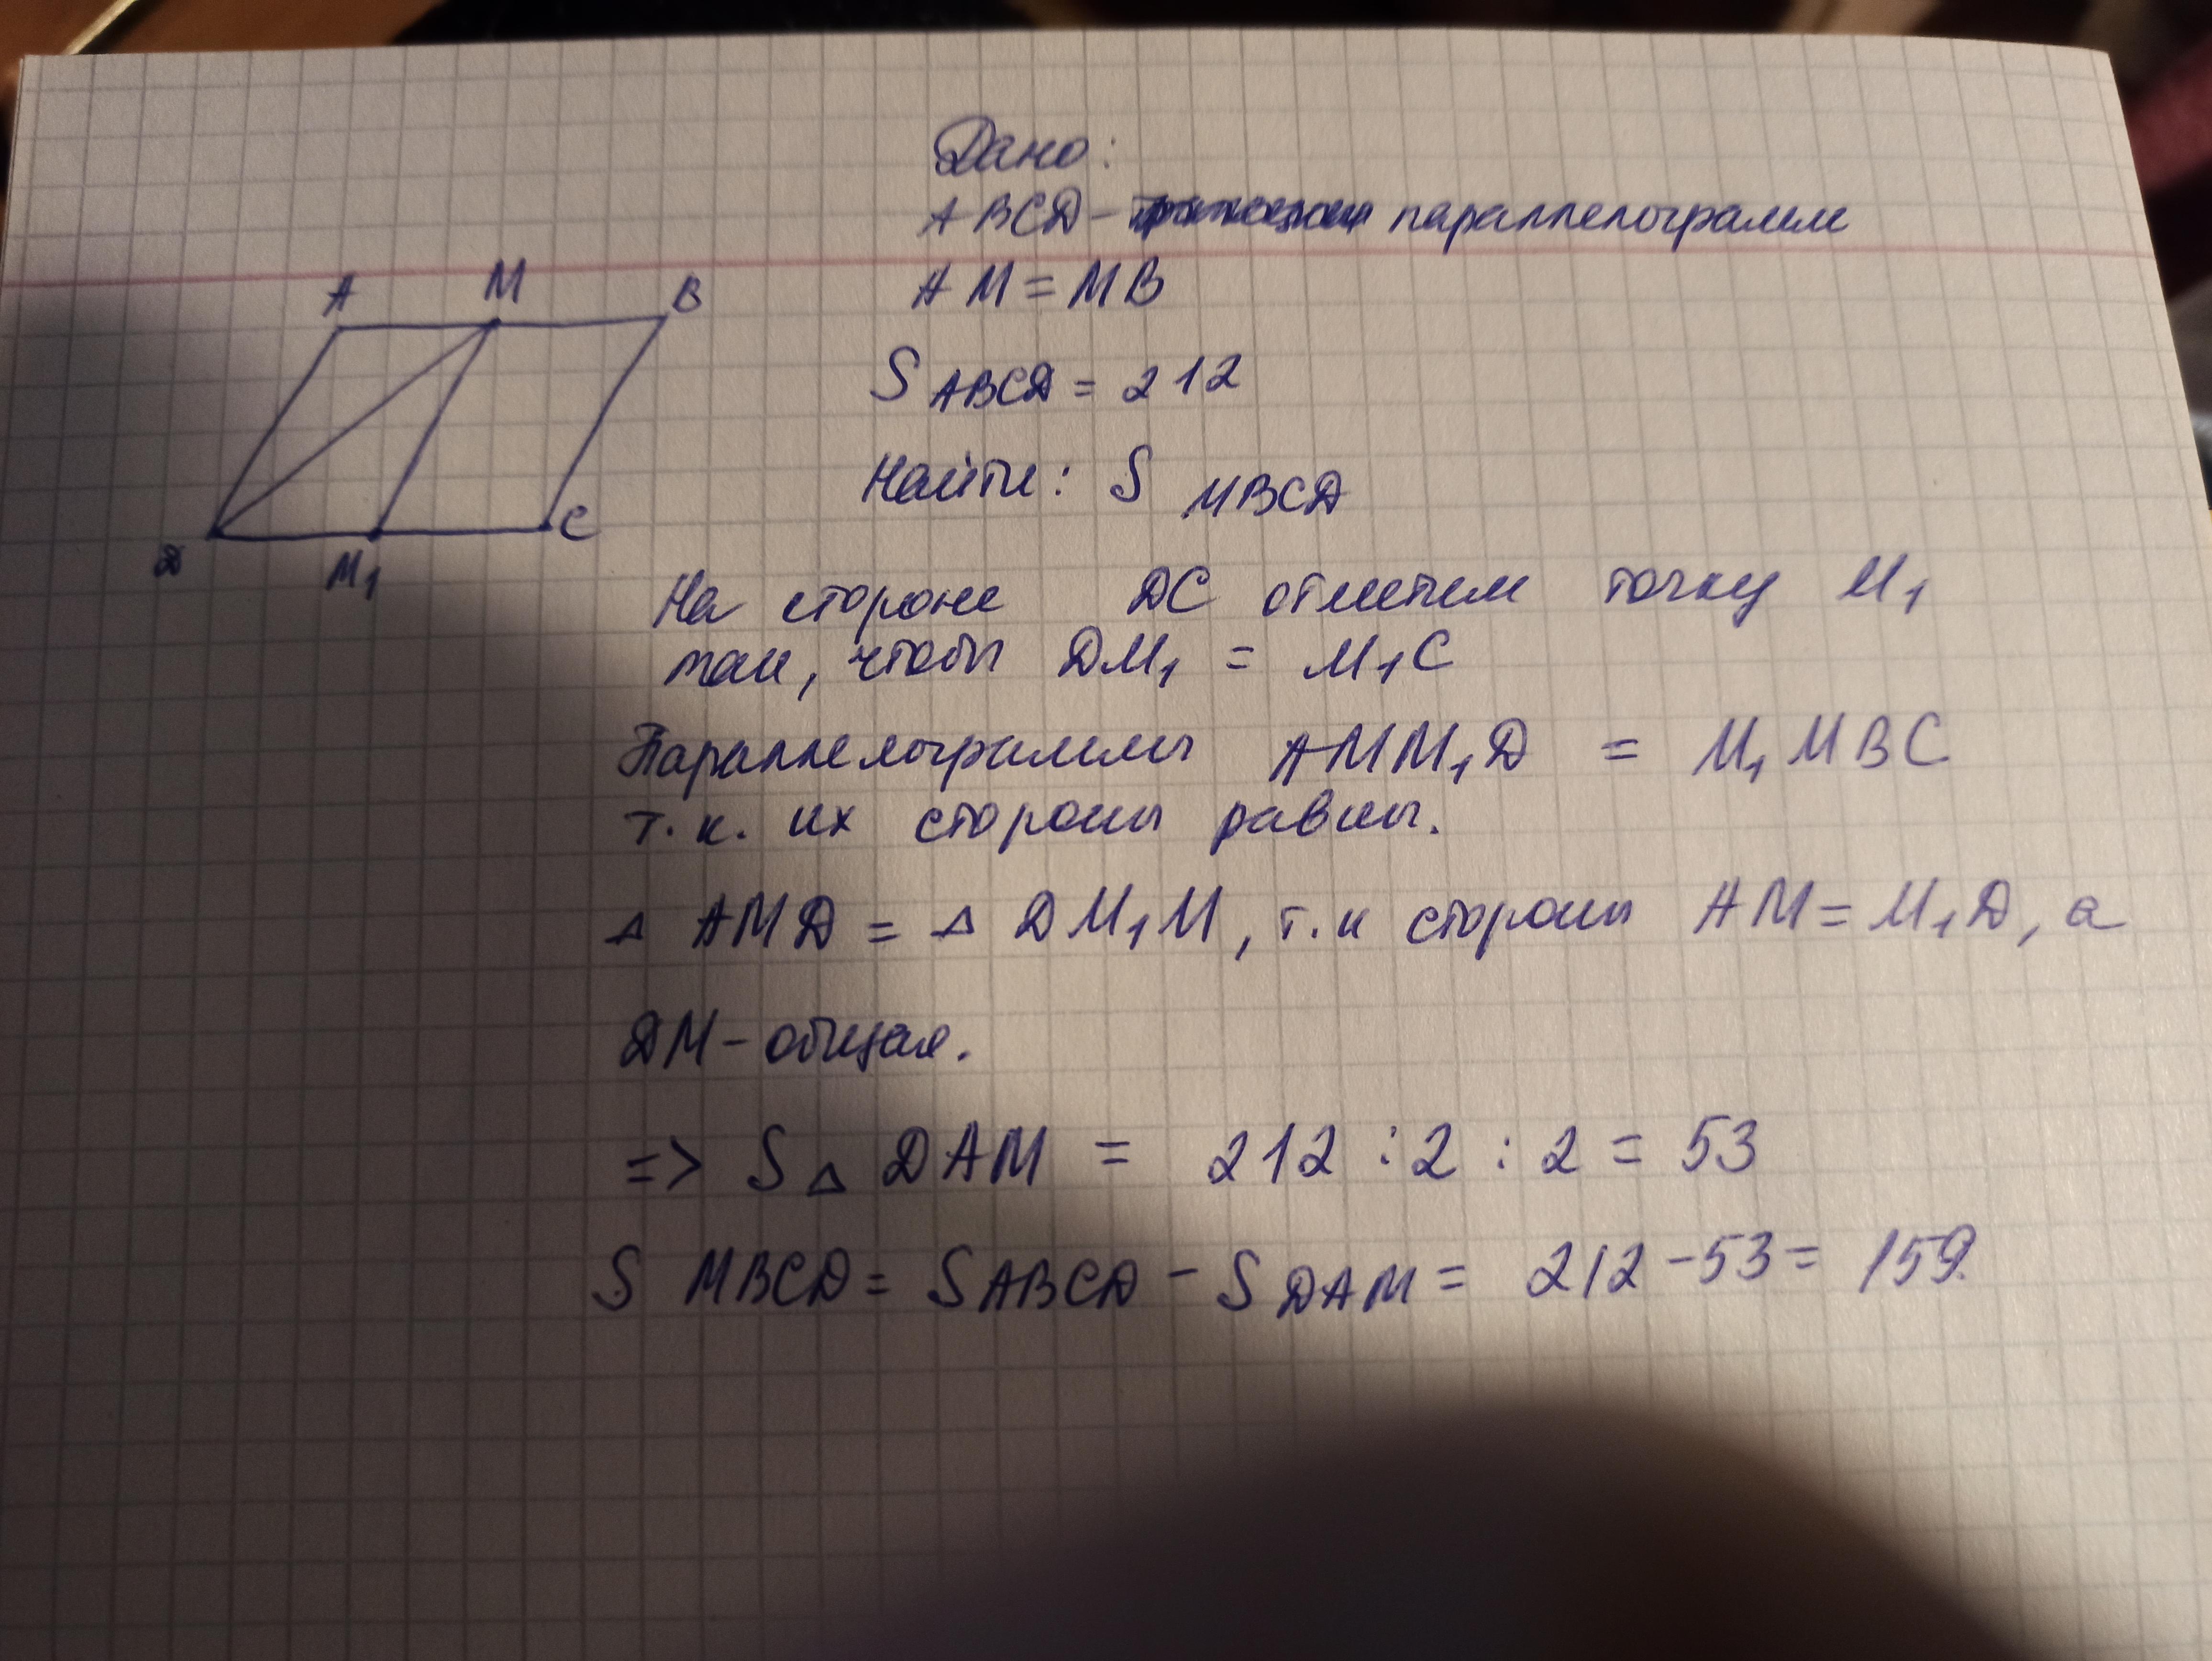 Дано:
ABCD - параллелограмм
A M B
AM = MB
S ABCD = 212
Найти: S MBCD
D M₁ C
На стороне DC отметим точку M₁
так, чтобы DM₁ = M₁C
Параллелограммы AMM₁D = M₁MBC
т.к. их стороны равны.
△ AMD = △ DM₁M, т.к стороны AM = M₁D, а
DM - общая.
=> S△ DAM = 212 : 2 : 2 = 53
S MBCD = S ABCD - S DAM = 212 - 53 = 159.